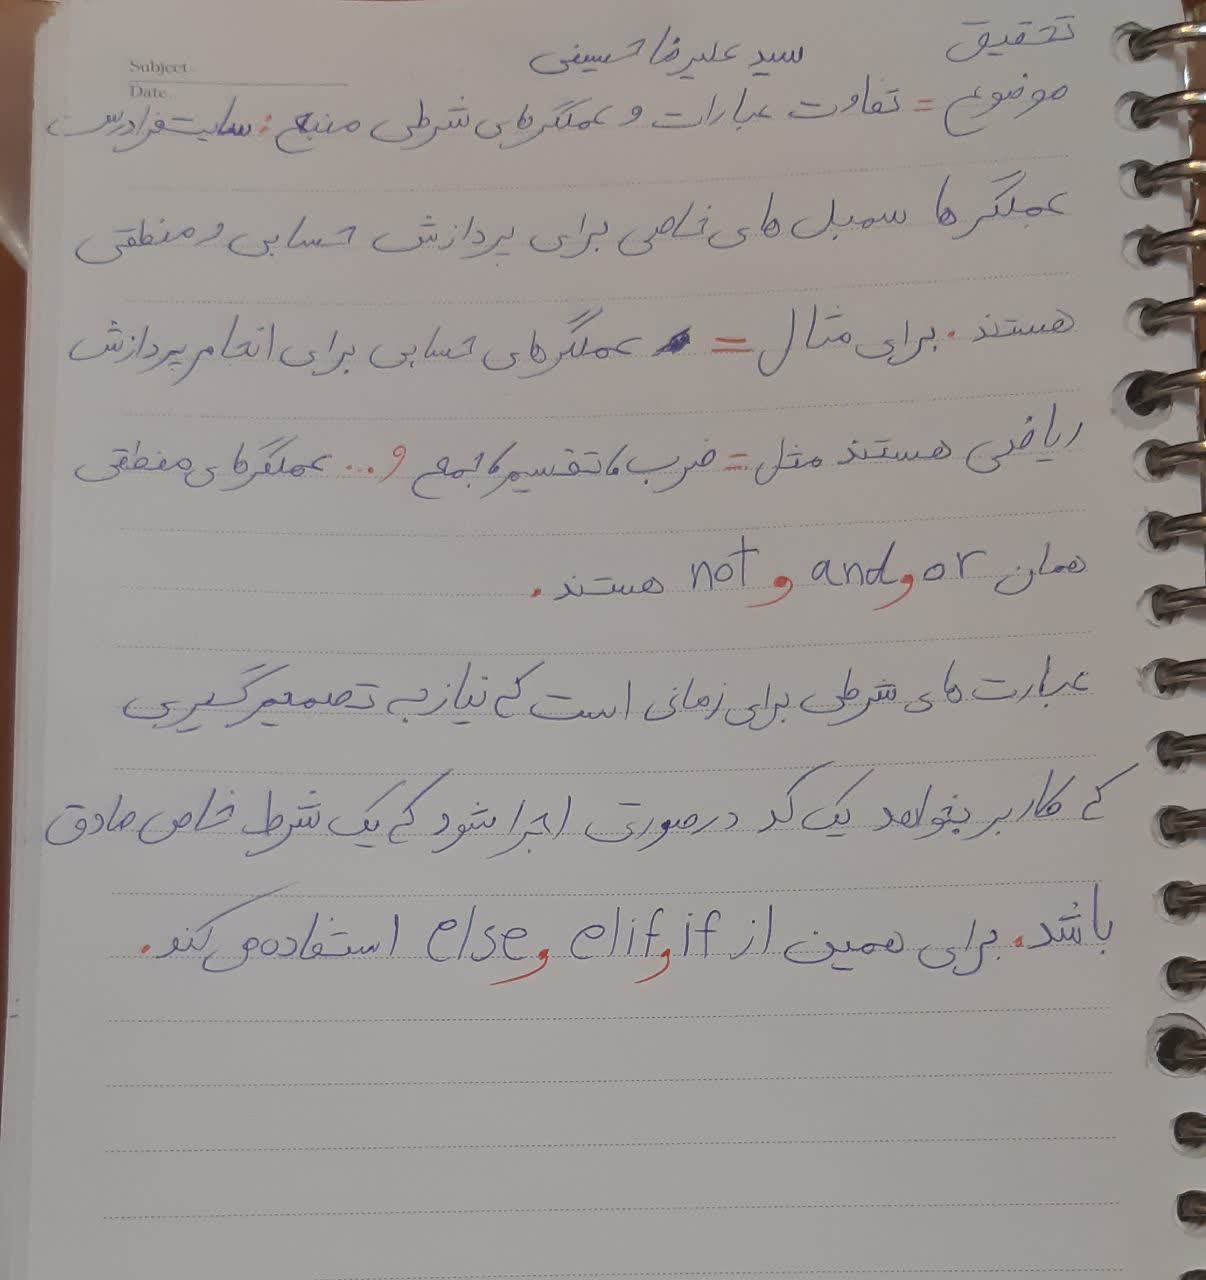 Subject
Date
تحقیق سید علیرضا حسینی
موضوع = تفاوت عبارات و عملگرهای شرطی منبع : سایت فرادرس
عملگر ها سمبل های خاصی برای پردازش حسابی و منطقی
هستند . برای مثال = عملگرهای حسابی برای انجام پردازش
ریاضی هستند مثل = ضرب ، تقسیم ، جمع و ... عملگرهای منطقی
همان or و and و not هستند .
عبارت های شرطی برای زمانی است که نیاز به تصمیم گیری
که کاربر بخواهد یک کد درصورتی اجرا شود که یک شرط خاص صادق
باشد . برای همین از if و elif و else استفاده می کند .